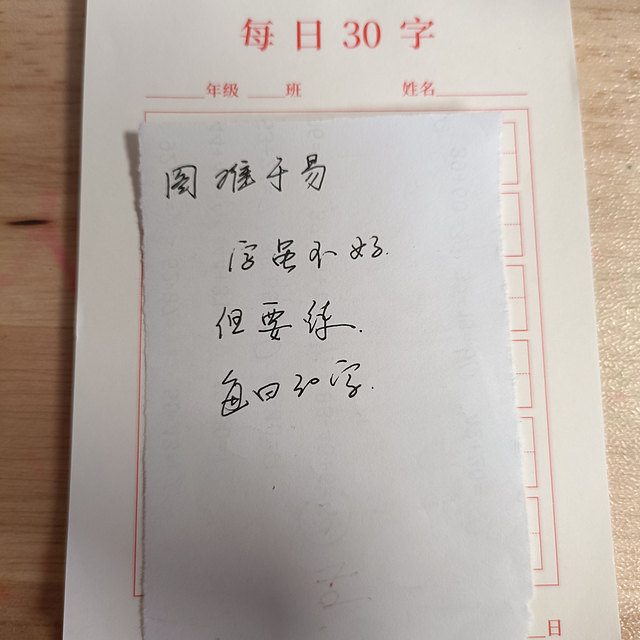 每日30字
年级 班 姓名
图难于易
字虽不好.
但要练.
每日30字.
日